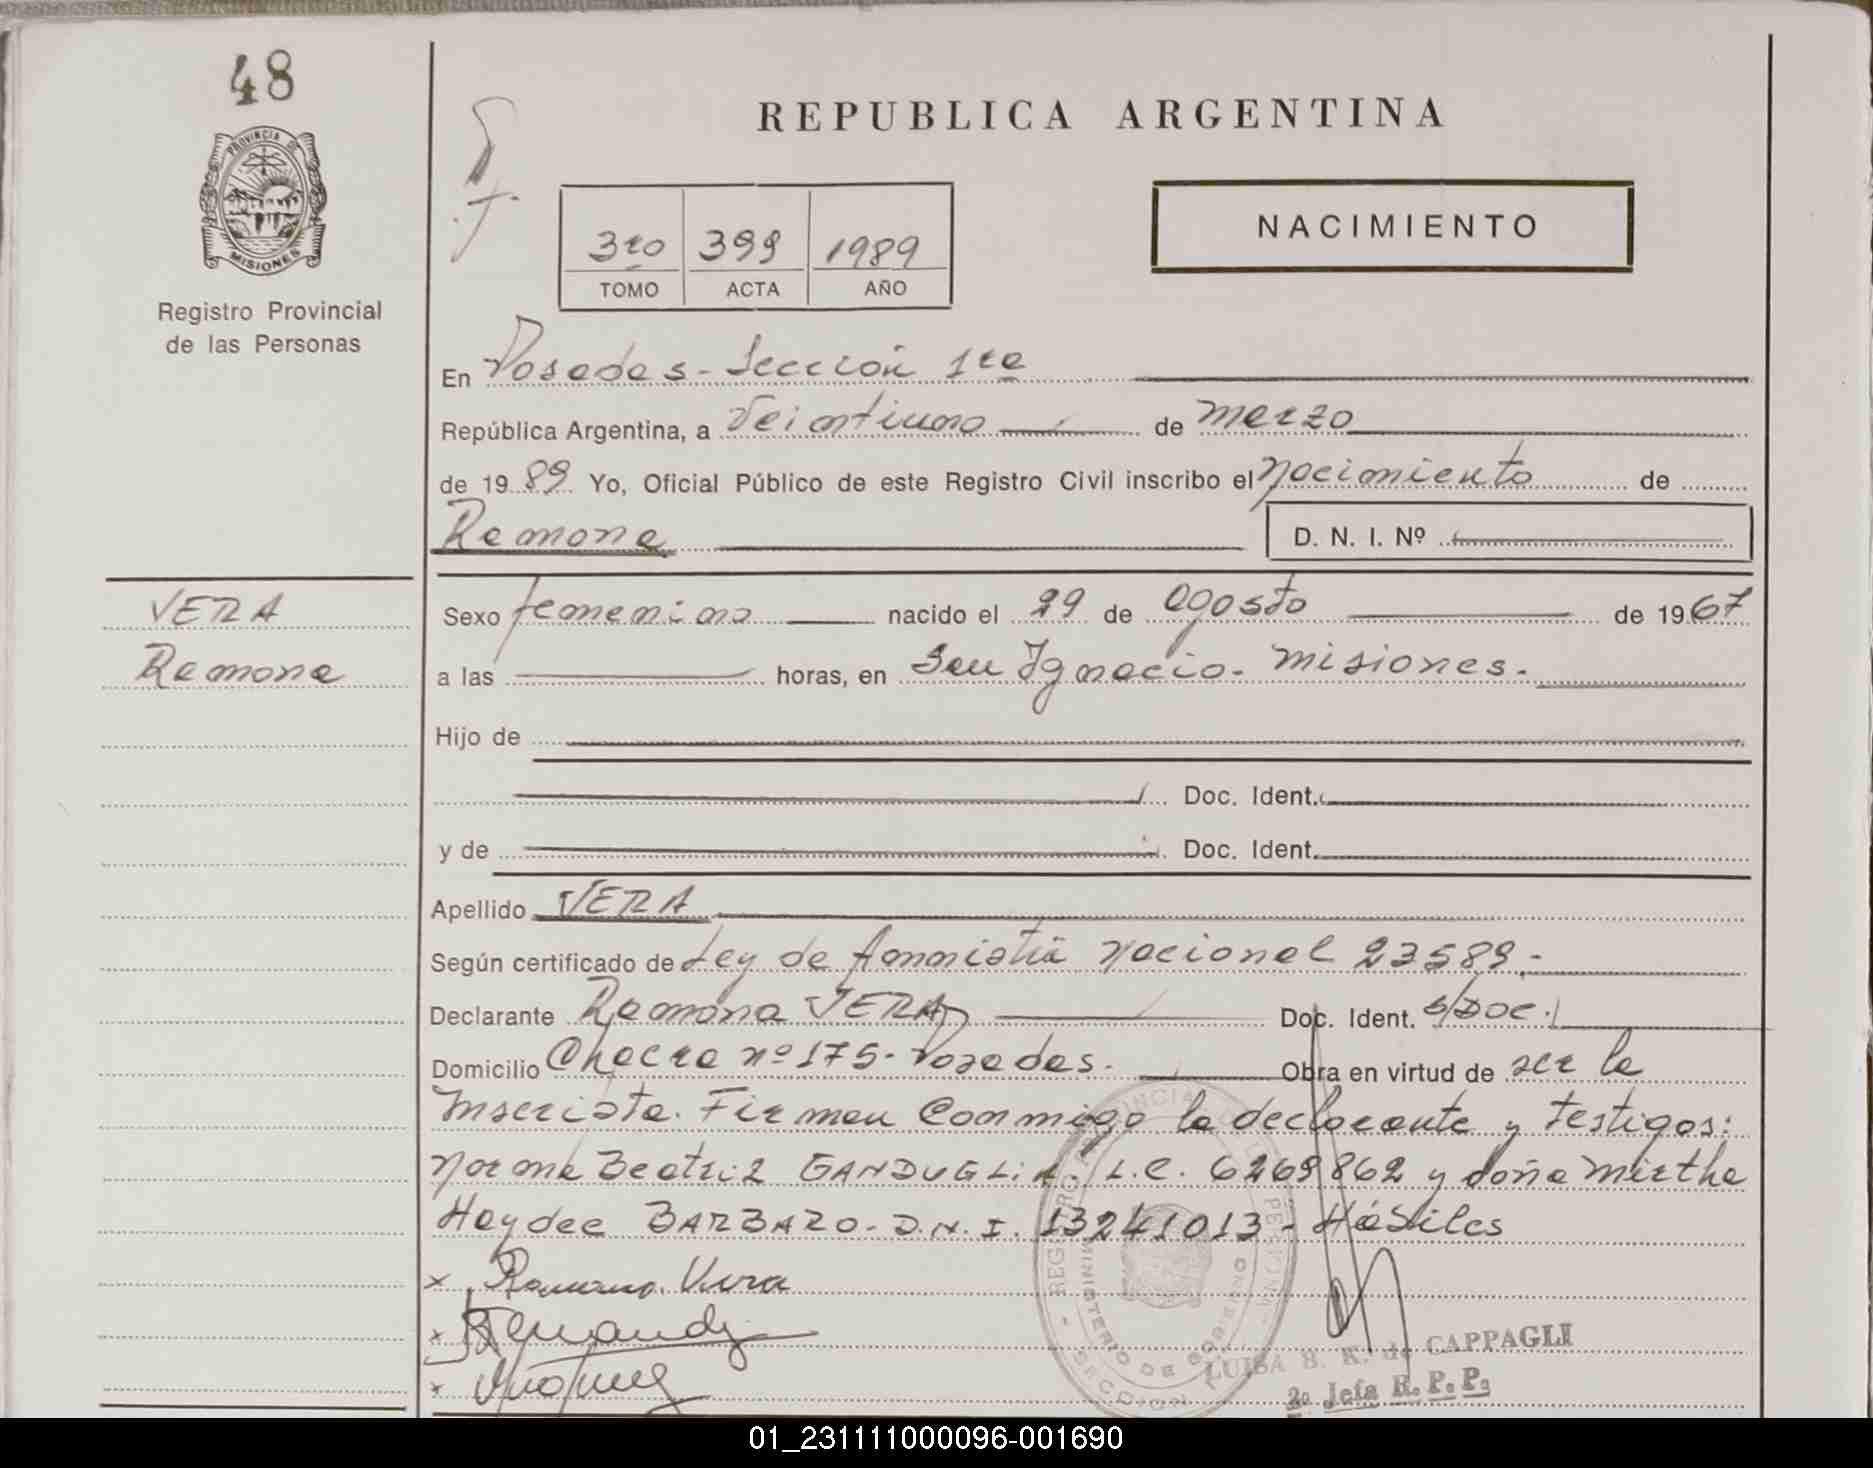 48
REPUBLICA ARGENTINA
PROVINCIA DE
MISIONES
NACIMIENTO
3ro 399 1989
TOMO ACTA AÑO
Registro Provincial
de las Personas
En Posadas - Sección 1ra
República Argentina, a Veintiuno de marzo
de 1989 Yo, Oficial Público de este Registro Civil inscribo el nacimiento de
Ramona D. N. I. Nº
VERA
Ramona
Sexo femenino nacido el 29 de agosto de 1967
a las horas, en San Ignacio - Misiones.
Hijo de
Doc. Ident.
y de Doc. Ident.
Apellido VERA
Según certificado de Ley de Amnistía Nacional 23589.-
Declarante Ramona VERA Doc. Ident. S/DOC.
Domicilio Chacra nº 175 - Posadas. Obra en virtud de ser la
Inscripta. Firman Conmigo la declarante y Testigos:
Norma Beatriz GANDUGLIA L.C. 6269862 y doña Mirtha
Haydee BARBARO - D.N.I. 13241013 - Hábiles
x Ramona Vera
x
x
REGISTRO PROVINCIAL DE LAS PERSONAS
MINISTERIO DE GOBIERNO
SECCION
LUISA B. K. de CAPPAGLI
2a Jefa R. P. P.
01_231111000096-001690